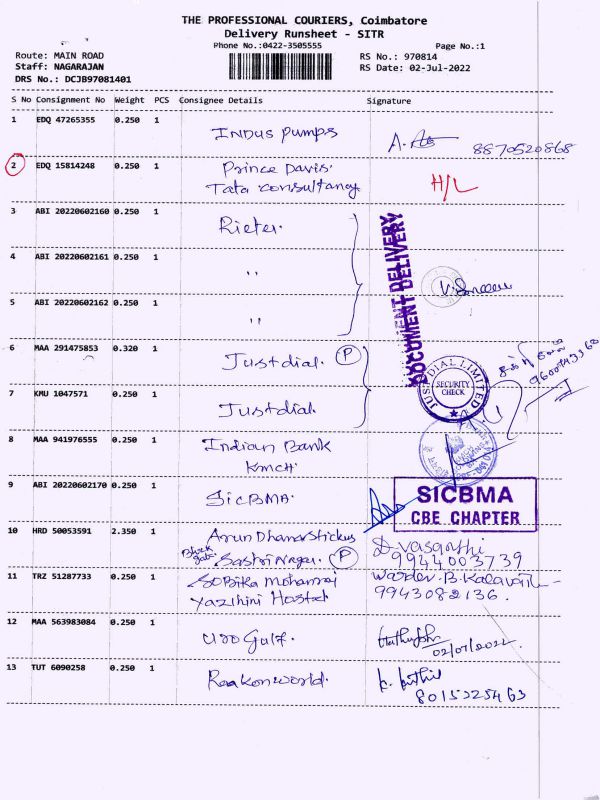 THE PROFESSIONAL COURIERS, Coimbatore
Delivery Runsheet - SITR
Phone No.:0422-3505555 Page No.:1
Route: MAIN ROAD RS No.: 970814
Staff: NAGARAJAN RS Date: 02-Jul-2022
DRS No.: DCJB97081401
S No Consignment No Weight PCS Consignee Details Signature
1 EDQ 47265355 0.250 1 INDUS PUMPS 8870520868
2 EDQ 15814248 0.250 1 Prince Davis. H/L
Tata Consultancy
3 ABI 20220602160 0.250 1 Rieter.
4 ABI 20220602161 0.250 1 "
5 ABI 20220602162 0.250 1 "
DOCUMENT DELIVERY
6 MAA 291475853 0.320 1 Justdial. P
JUSTDIAL LIMITED
SECURITY CHECK
7 KMU 1047571 0.250 1 Justdial.
8 MAA 941976555 0.250 1 Indian Bank
KMCH
9 ABI 20220602170 0.250 1 SICBMA. SICBMA
CBE CHAPTER
10 HRD 50053591 2.350 1 Arun D. Vasanthi
Sastri Nagar. P 9944003739
11 TRZ 51287733 0.250 1 Sobika Mohanraj Warden. B. Kalavathi
Yazhini Hostel 9943082136.
12 MAA 563983084 0.250 1 Gulf. 02/07/2022
13 TUT 6090258 0.250 1 Raakonworld. 8015225463